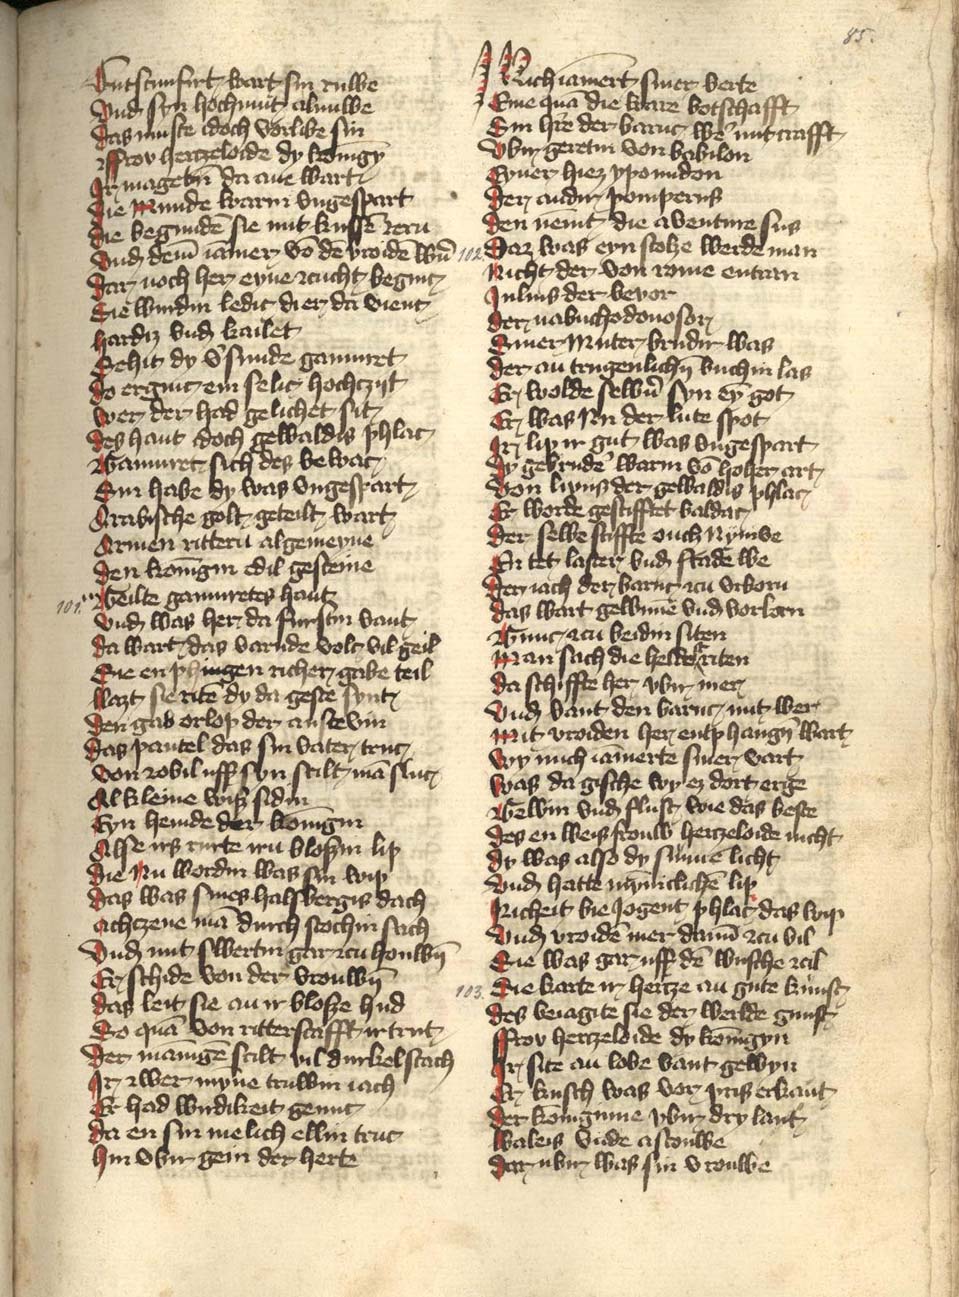 85.
Entscunfirt wart sin ruwe
Vnd syn hochmut al nuwe
Das muste idoch vorlibe sin
Ffrov herczeloide dy konīgȳ
Ir magetū da ane wart
Die Munde warn vngespart
Die begundē sie mit kussē zern
Vnd dem iamer vō de vroidē wern
Dar noch her eyne zcucht beginc
Sie wurdin ledic dier da vienc
hardiz vnd kailet
Sehit dy vsunde gamuret
do erginc ein selic hochczijt
wer der had gelichet sit
des hant idoch gewaldis phlac
Gamuret sich des bewac
Sin habe dy was vngespart
Arabische golt geteilt wart
Armen rittern algemeyne
den konīgin edil gesteine
101. Teilte gamuretes hant
Vnd was her da fursten vant
da wart das varnde volc vil geil
Die en phingen richer gabe teil
lazt sie ritē dy da geste synt
den gab orlop der ansevin
das pantel das sin vater truc
von zobil uff syn schilt mā sluc
Al kleine wijs sidin
Eyn hemde der konīgin
Alse irs rurte iru blossin lip
die Nu wordin was sin wip
das was sines halsbergis dach
achczene mā durch stochin sach
Vnd mit swertin gar zcu houwin
Er schide von der vrouwin
das leit sie an ir blosse hud
So quā von ritterscafft ir trut
der manigē schilt vil durkel stach
Ir zwer myne truwin iach
Er had wirdikeit genuc
da en sin mēlich ellin truc
hin vbir gein der herte
Mich iamert siner verte
Eme quā die ware botschafft
Sin h're der baruc we' mit crafft
vbir geretin von babilon
Eyner hiez ypomidon
der andir pomperius
den nēnit die aventure sus
102. Daz was eyn stolze werde man
Nicht der von rome entran
Julius der bevor
der nabuchodonosor
Siner Muter brudir was
der an trugenlichin buchin las
Er wolde selwer syn eyn got
Er was Nu der lute spot
Ir lip ir gut was vngespart
dy gebrudē warin vō hoher art
von linus der gewaldis phlac
Er worde gestifftet baldac
der selbe stiffte ouch Nynive
En tet laster vnd stade we
der iach der baruc zcu vrborn
das wart gewunnē vnd vorlorn
Genuc zcu beidin siten
Man sach die helde striten
da schiffte her vbir mer
Vnd vant den baruc mit wer
Mit vroiden her entphangin wart
wy mich iāmerte siner vart
was da gische wy ez dort erge
Gewin vnd flust wie das beste
des en weis frouw herczeloide nicht
dy was also dy sunne licht
Vnd hatte mynniclichē lip
Richeit bie Jogent phlac das wip
Vnd vroidē mer danne zcu vil
Sie was gar uff dē wnsche zcil
103. Sie karte ir hercze an gute kunst
des beiagite sie der werlde gunst
Ffrov herczeloide dy konīgyn
Ir site an lobe vant gewyn
Er kusch was vor pris erkant
der konīginne vbir dry lant
waleis vnde ascouwe
Dar vbir was sin vrouwe